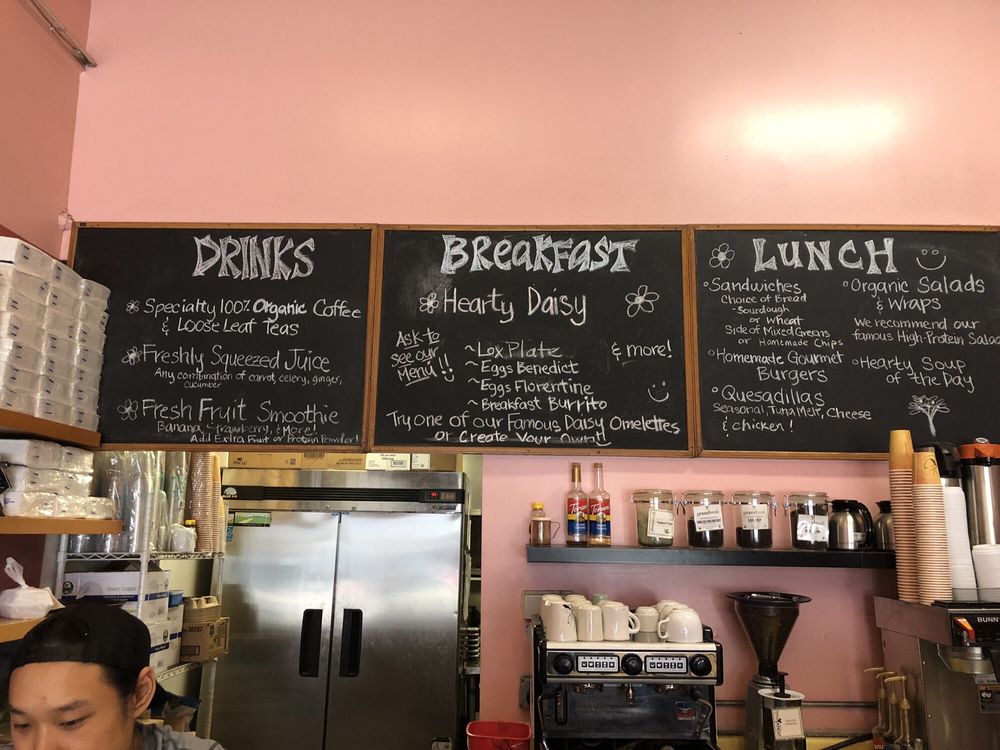 DRINKS
Specialty 100% Organic Coffee
& Loose Leaf Teas
Freshly Squeezed Juice
Any combination of carrot, celery, ginger,
cucumber
Fresh Fruit Smoothie
Banana, Strawberry, & More!
Add Extra Fruit or Protein Powder!
BREAKFAST
Hearty Daisy
Ask to
see our
Menu!!
~Lox Plate
& more!
~Eggs Benedict
~Eggs Florentine
~Breakfast Burrito
Try one of our Famous Daisy Omelettes
or Create Your Own!!
LUNCH
Sandwiches
Choice of Bread
-Sourdough
or Wheat
Side of Mixed Greens
or Homemade Chips
Homemade Gourmet
Burgers
Quesadillas
Seasonal, Tuna Melt, Cheese
& Chicken!
Organic Salads
& Wraps
We recommend our
famous High-Protein Salad
Hearty Soup
of the Day
Torani
Torani
BUNN